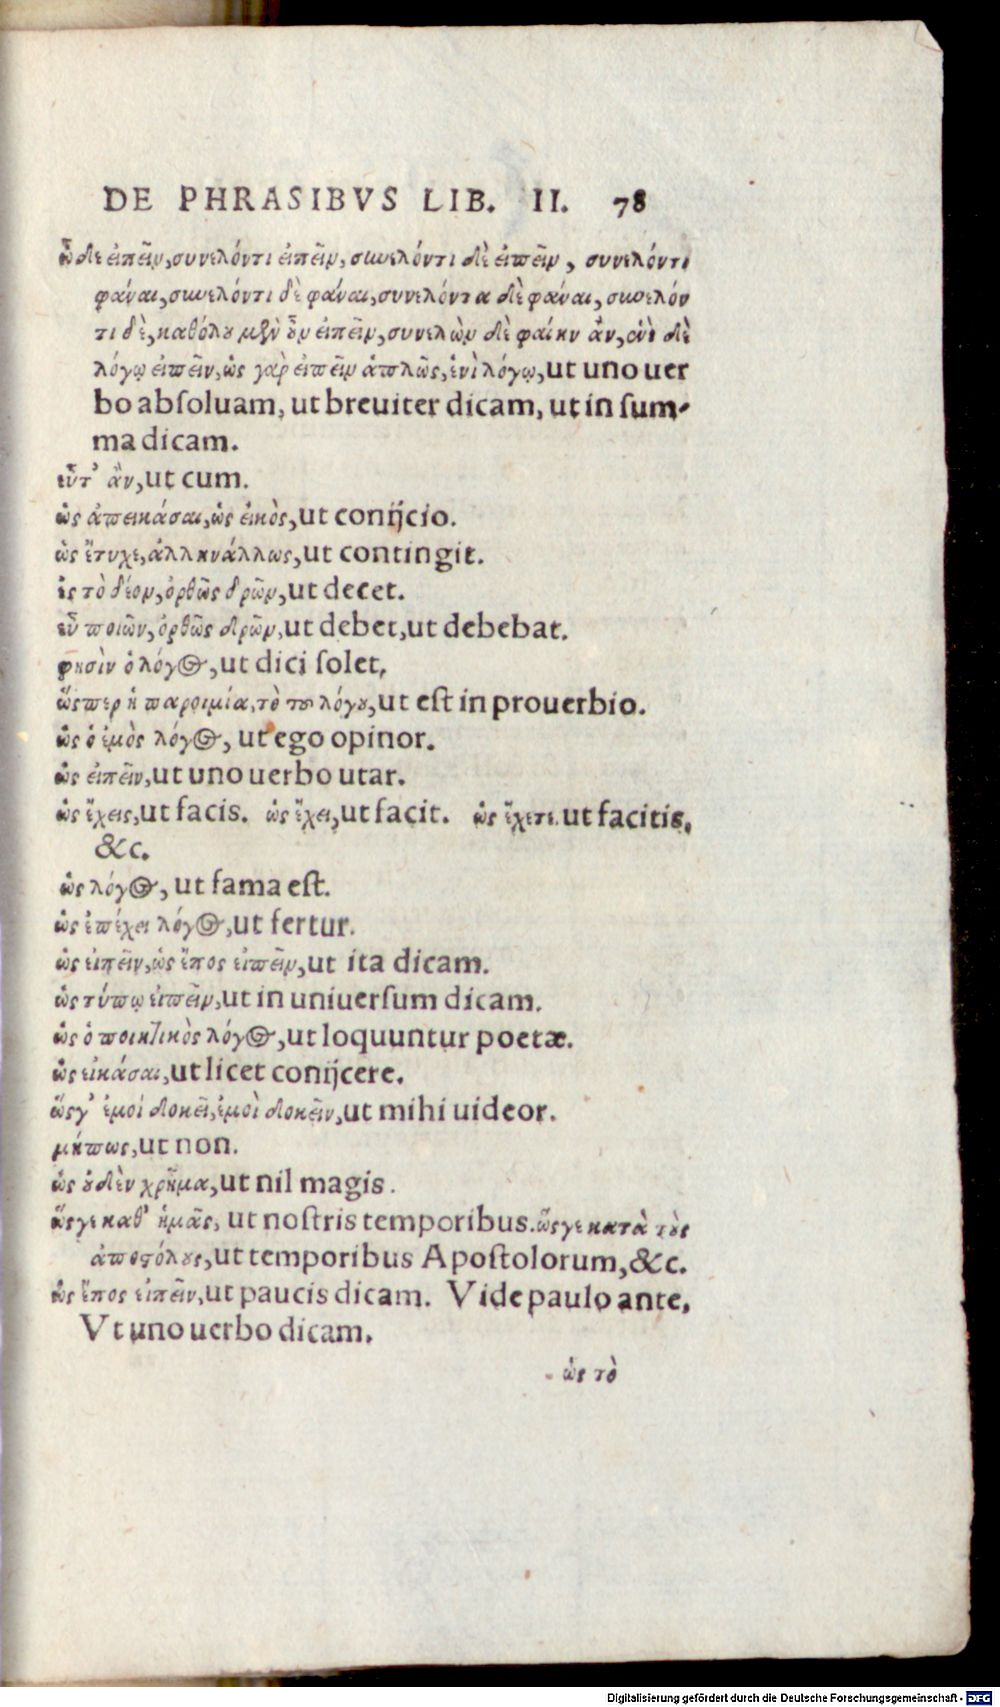 DE PHRASIBVS LIB. II. 78
ὧδε εἰπεῖν, συνελόντι εἰπεῖν, συνελόντι δὲ εἰπεῖν, συνελόντι
φάναι, συνελόντι δὲ φάναι, συνελόντα δὲ φάναι, συνελόν
τι δὲ, καθόλου μὲν οὖν εἰπεῖν, συνελὼν δὲ φαίην ἂν, ἑνὶ δὲ
λόγῳ εἰπεῖν, ὡς γὰρ εἰπεῖν ἁπλῶς, ἑνὶ λόγῳ, ut uno uer
bo absoluam, ut breuiter dicam, ut in sum-
ma dicam.
εὖτ' ἂν, ut cum.
ὡς ἀπεικάσαι, ὡς εἰκὸς, ut conijcio.
ὡς ἔτυχε, ἀλλην ἄλλως, ut contingit.
εἰς τὸ δέον, ὀρθῶς δρῶν, ut decet.
εὖ ποιῶν, ὀρθῶς δρῶν, ut debet, ut debebat.
φησὶν ὁ λόγος, ut dici solet.
ὥσπερ ἡ παροιμία, τὸ τοῦ λόγου, ut est in prouerbio.
ὡς ὁ ἐμὸς λόγος, ut ego opinor.
ὡς εἰπεῖν, ut uno uerbo utar.
ὡς ἔχεις, ut facis. ὡς ἔχει, ut facit. ὡς ἔχετε. ut facitis,
&c.
ὡς λόγος, ut fama est.
ὡς ἐπέχει λόγος, ut fertur.
ὡς εἰπεῖν, ὡς ἔπος εἰπεῖν, ut ita dicam.
ὡς τύπῳ εἰπεῖν, ut in uniuersum dicam.
ὡς ὁ ποιητικὸς λόγος, ut loquuntur poetæ.
ὡς εἰκάσαι, ut licet conijcere.
ὥς γ' ἐμοὶ δοκεῖ, ἐμοὶ δοκεῖν, ut mihi uideor.
μήπως, ut non.
ὡς οὐδὲν χρῆμα, ut nil magis.
ὥς γε καθ' ἡμᾶς, ut nostris temporibus. ὥς γε κατὰ τοὺς
ἀποστόλους, ut temporibus Apostolorum, &c.
ὡς ἔπος εἰπεῖν, ut paucis dicam. Vide paulo ante,
Vt uno uerbo dicam.
ὡς τὸ
Digitalisierung gefördert durch die Deutsche Forschungsgemeinschaft - DFG